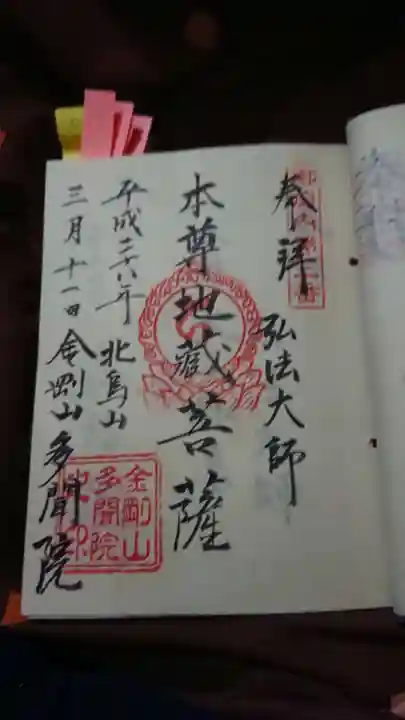 奉拝
弘法大師
本尊地蔵菩薩
平成二十六年
北烏山
三月十一日
金剛山多聞院
金剛山
多聞院